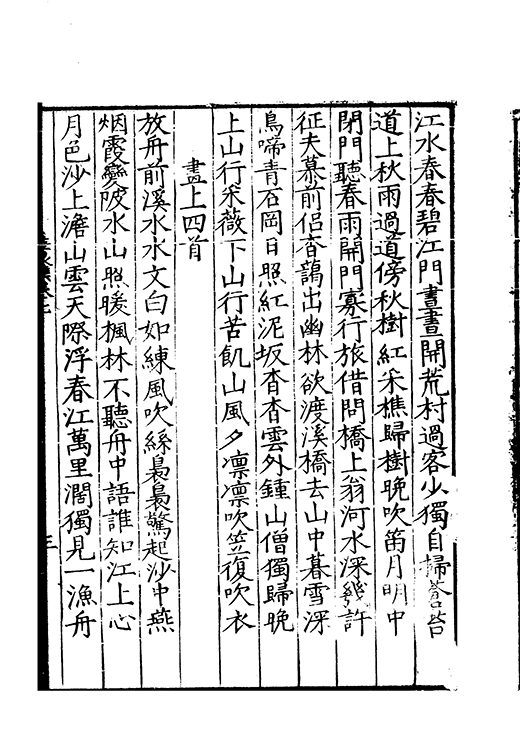 江水春春碧江門晝晝開荒村過客少獨自掃蒼苔
道上秋雨過道傍秋樹紅采樵歸樹晚吹笛月明中
閉門聽春雨開門寡行旅借問橋上翁河水深幾許
征夫慕前侣杳藹出幽林欲渡溪橋去山中暮雪深
鳥啼青石岡日照紅泥坂杳杳雲外鍾山僧獨歸晚
上山行采薇下山行苦飢山風夕凛凛吹笠復吹衣
盡上四首
放舟前溪水水文白如練風吹絲裊裊驚起沙中燕
烟霞變陂水山照暖楓林不聽舟中語誰知江上心
月色沙上澹山雲天際浮春江萬里濶獨見一漁舟
三